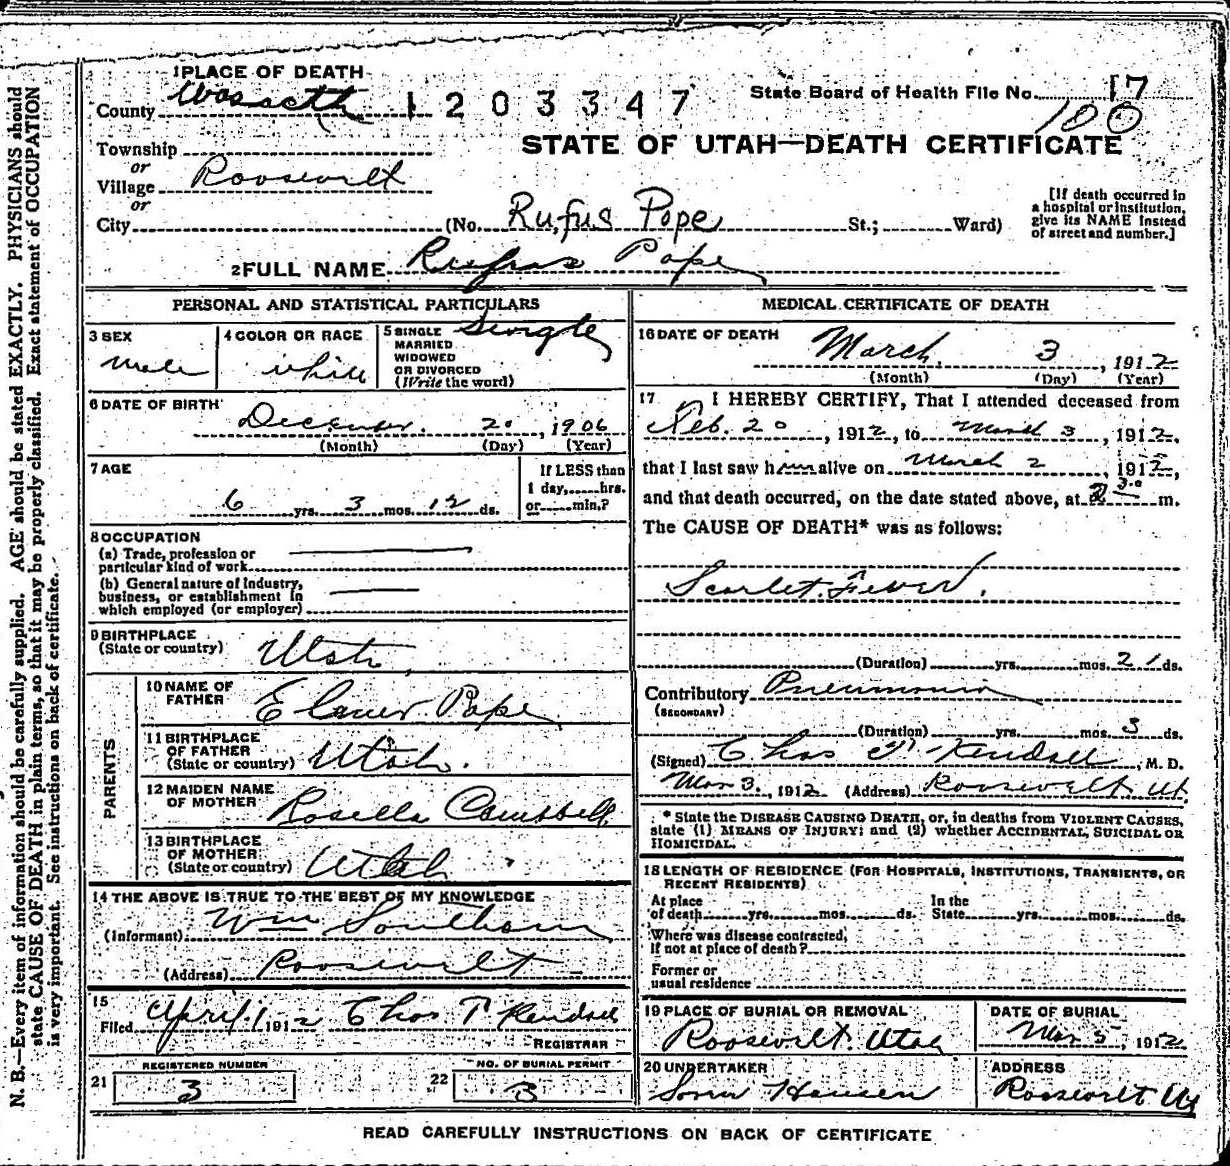 1 PLACE OF DEATH
County Wasatch 1203347
State Board of Health File No. 17
100
STATE OF UTAH—DEATH CERTIFICATE
Township
or
Village Roosevelt
or
City (No. Rufus Pope St.; Ward)
[If death occurred in
a hospital or institution,
give its NAME instead
of street and number.]
2 FULL NAME Rufus Pope
PERSONAL AND STATISTICAL PARTICULARS
3 SEX
male
4 COLOR OR RACE
white
5 SINGLE
MARRIED
WIDOWED
OR DIVORCED
(Write the word)
Single
6 DATE OF BIRTH
December 20, 1906
(Month) (Day) (Year)
7 AGE
6 yrs. 3 mos. 12 ds.
If LESS than
1 day, hrs.
or min.?
8 OCCUPATION
(a) Trade, profession or
particular kind of work
(b) General nature of Industry,
business, or establishment in
which employed (or employer)
9 BIRTHPLACE
(State or country)
Utah
PARENTS
10 NAME OF
FATHER
Pope
11 BIRTHPLACE
OF FATHER
(State or country)
Utah.
12 MAIDEN NAME
OF MOTHER
Rosella Campbell
13 BIRTHPLACE
OF MOTHER
(State or country)
Utah
14 THE ABOVE IS TRUE TO THE BEST OF MY KNOWLEDGE
(Informant) Wm Southam
(Address) Roosevelt
15
Filed April 1 1912 Chas T Kendall
REGISTRAR
21
REGISTERED NUMBER
3
22
NO. OF BURIAL PERMIT
3
MEDICAL CERTIFICATE OF DEATH
16 DATE OF DEATH
March 3, 1912
(Month) (Day) (Year)
17 I HEREBY CERTIFY, That I attended deceased from
Feb. 20, 1912, to March 3, 1912,
that I last saw him alive on March 2, 1912,
and that death occurred, on the date stated above, at 2 30 m.
The CAUSE OF DEATH* was as follows:
Scarlet Fever.
(Duration) yrs. mos. 21 ds.
Contributory Pneumonia
(SECONDARY)
(Duration) yrs. mos. 3 ds.
(Signed) Chas T. Kendall, M. D.
Mar 3., 1912 (Address) Roosevelt Ut.
* State the DISEASE CAUSING DEATH, or, in deaths from VIOLENT CAUSES,
state (1) MEANS OF INJURY; and (2) whether ACCIDENTAL, SUICIDAL OR
HOMICIDAL.
18 LENGTH OF RESIDENCE (FOR HOSPITALS, INSTITUTIONS, TRANSIENTS, OR
RECENT RESIDENTS)
At place
of death yrs. mos. ds.
In the
State yrs. mos. ds.
Where was disease contracted,
If not at place of death?
Former or
usual residence
19 PLACE OF BURIAL OR REMOVAL
Roosevelt. Utah
DATE OF BURIAL
Mar 5, 1912
20 UNDERTAKER
Hansen
ADDRESS
Roosevelt Ut
READ CAREFULLY INSTRUCTIONS ON BACK OF CERTIFICATE
N. B.—Every item of information should be carefully supplied. AGE should be stated EXACTLY. PHYSICIANS should
state CAUSE OF DEATH in plain terms, so that it may be properly classified. Exact statement of OCCUPATION
is very important. See instructions on back of certificate.